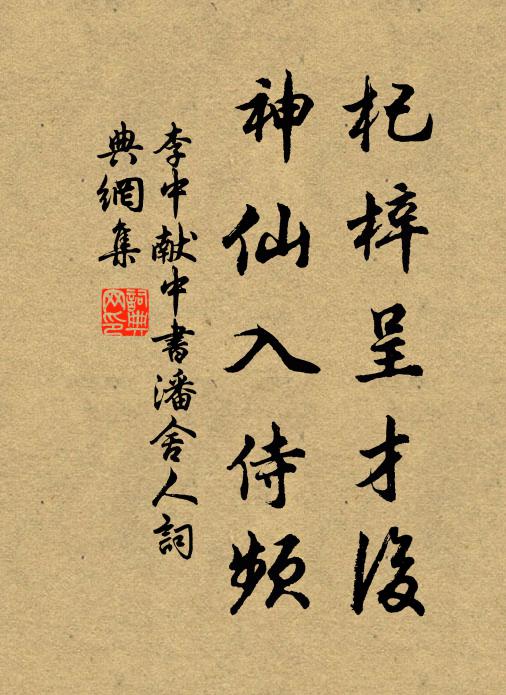 杞梓呈才後
神仙入侍頻
李中献中書潘舍人詞
典網集
詞典网印